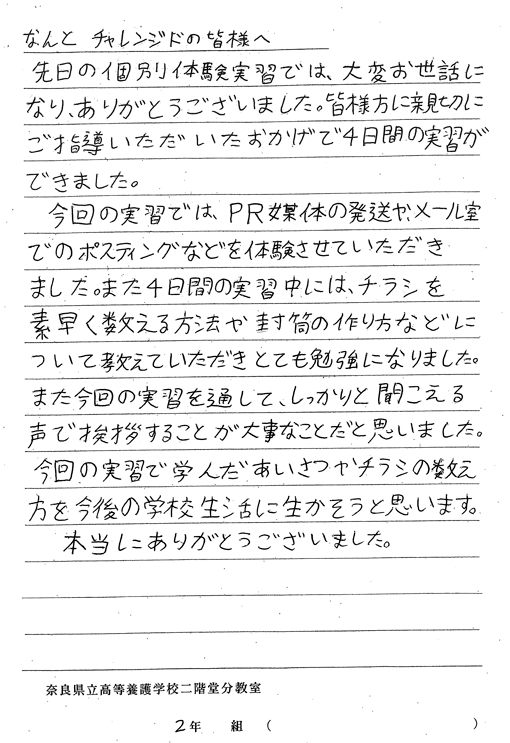 なんと チャレンジドの皆様へ
先日の個別体験実習では、大変お世話に
なり、ありがとうございました。皆様方に親切に
ご指導いただいたおかげで4日間の実習が
できました。
今回の実習では、PR媒体の発送やメール室
でのポスティングなどを体験させていただき
ました。また4日間の実習中には、チラシを
素早く数える方法や封筒の作り方などに
ついて教えていただきとても勉強になりました。
また今回の実習を通して、しっかりと聞こえる
声で挨拶することが大事なことだと思いました。
今回の実習で学んだあいさつやチラシの数え
方を今後の学校生活に生かそうと思います。
本当にありがとうございました。
奈良県立高等養護学校二階堂分教室
2年 組 ( )